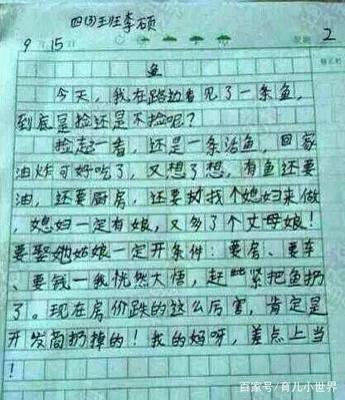 四(3)班李硕
9月15日 星期 2
鱼
今天，我在路边看见了一条鱼，
到底是捡还是不捡呢？
捡起一看，还是一条活鱼，回家
油炸可好吃了，又想了想，有鱼还要
油，还要厨房，还要找个媳妇来做
，媳妇一定有娘，又多了个丈母娘！
要娶她姑娘一定开条件：要房、要车
、要钱一我恍然大悟，赶紧把鱼扔
了。现在房价跌的这么厉害，肯定是
开发商扔掉的！我的妈呀，差点上当
！
百家号/育儿小世界